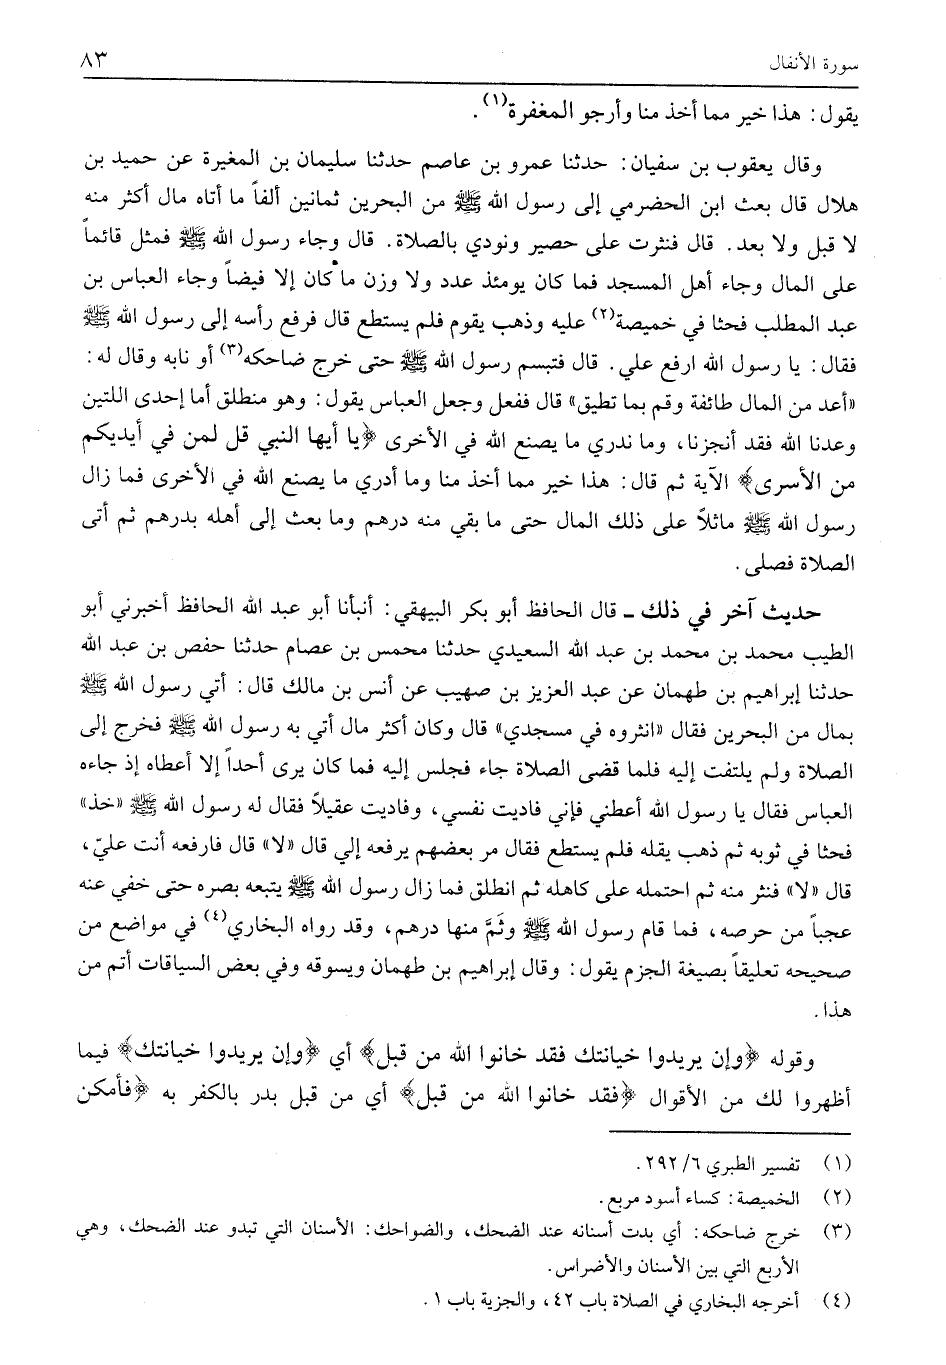 سورة الأنفال ٨٣
يقول: هذا خير مما أخذ منا وأرجو المغفرة(١).
وقال يعقوب بن سفيان: حدثنا عمرو بن عاصم حدثنا سليمان بن المغيرة عن حميد بن
هلال قال بعث ابن الحضرمي إلى رسول الله ﷺ من البحرين ثمانين ألفاً ما أتاه مال أكثر منه
لا قبل ولا بعد. قال فنثرت على حصير ونودي بالصلاة. قال وجاء رسول الله ﷺ فمثل قائماً
على المال وجاء أهل المسجد فما كان يومئذ عدد ولا وزن ما كان إلا فيضاً وجاء العباس بن
عبد المطلب فحثا في خميصة(٢) عليه وذهب يقوم فلم يستطع قال فرفع رأسه إلى رسول الله ﷺ
فقال: يا رسول الله ارفع علي. قال فتبسم رسول الله ﷺ حتى خرج ضاحكه(٣) أو نابه وقال له:
«أعد من المال طائفة وقم بما تطيق» قال ففعل وجعل العباس يقول: وهو منطلق أما إحدى اللتين
وعدنا الله فقد أنجزنا، وما ندري ما يصنع الله في الأخرى ﴿يا أيها النبي قل لمن في أيديكم
من الأسرى﴾ الآية ثم قال: هذا خير مما أخذ منا وما أدري ما يصنع الله في الأخرى فما زال
رسول الله ﷺ ماثلاً على ذلك المال حتى ما بقي منه درهم وما بعث إلى أهله بدرهم ثم أتى
الصلاة فصلى.
حديث آخر في ذلك ـ قال الحافظ أبو بكر البيهقي: أنبأنا أبو عبد الله الحافظ أخبرني أبو
الطيب محمد بن محمد بن عبد الله السعيدي حدثنا محمس بن عصام حدثنا حفص بن عبد الله
حدثنا إبراهيم بن طهمان عن عبد العزيز بن صهيب عن أنس بن مالك قال: أتي رسول الله ﷺ
بمال من البحرين فقال «انثروه في مسجدي» قال وكان أكثر مال أتي به رسول الله ﷺ فخرج إلى
الصلاة ولم يلتفت إليه فلما قضى الصلاة جاء فجلس إليه فما كان يرى أحداً إلا أعطاه إذ جاءه
العباس فقال يا رسول الله أعطني فإني فاديت نفسي، وفاديت عقيلاً فقال له رسول الله ﷺ «خذ»
فحثا في ثوبه ثم ذهب يقله فلم يستطع فقال مر بعضهم يرفعه إلي قال «لا» قال فارفعه أنت عليّ،
قال «لا» فنثر منه ثم احتمله على كاهله ثم انطلق فما زال رسول الله ﷺ يتبعه بصره حتى خفي عنه
عجباً من حرصه، فما قام رسول الله ﷺ وثَمَّ منها درهم، وقد رواه البخاري(٤) في مواضع من
صحيحه تعليقاً بصيغة الجزم يقول: وقال إبراهيم بن طهمان ويسوقه وفي بعض السياقات أتم من
هذا.
وقوله ﴿وإن يريدوا خيانتك فقد خانوا الله من قبل﴾ أي ﴿وإن يريدوا خيانتك﴾ فيما
أظهروا لك من الأقوال ﴿فقد خانوا الله من قبل﴾ أي من قبل بدر بالكفر به ﴿فأمكن
(١) تفسير الطبري ٦/ ٢٩٢.
(٢) الخميصة: كساء أسود مربع.
(٣) خرج ضاحكه: أي بدت أسنانه عند الضحك، والضواحك: الأسنان التي تبدو عند الضحك، وهي
الأربع التي بين الأسنان والأضراس.
(٤) أخرجه البخاري في الصلاة باب ٤٢، والجزية باب ١.